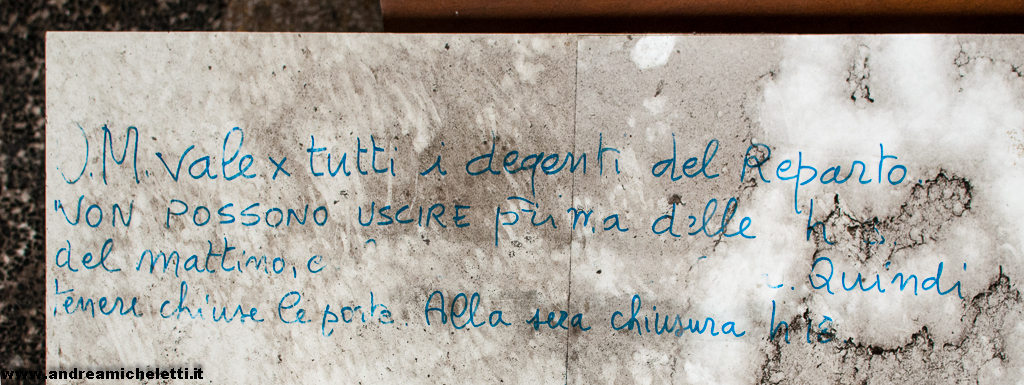 J.M. Vale x tutti i degenti del Reparto
NON POSSONO USCIRE prima dalle h
del mattino, e . Quindi
tenere chiuse le porte. Alla sera chiusura h
www.andreamicheletti.it